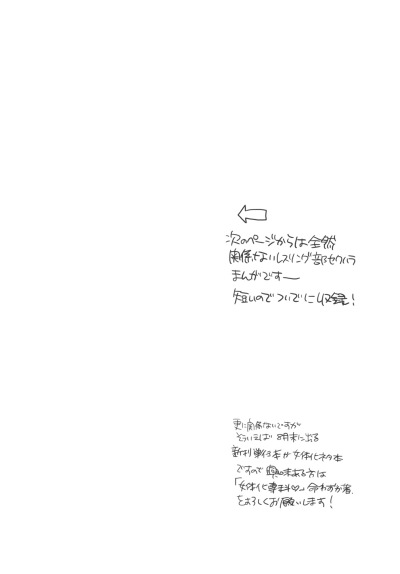 次のページからは全然
関係ないレスリング部セクハラ
まんがですー
短いのでついでに収録!
更に関係ないですが
そういえば 8月末に出る
新刊 が女体化ネタ本
ですので興味ある方は
「女体化 ♡」
をよろしくお願いします!